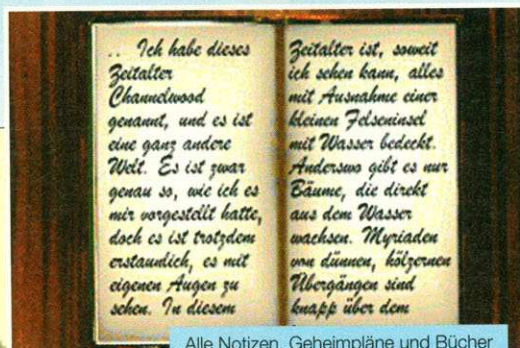 .. Ich habe dieses
Zeitalter
Channelwood
genannt, und es ist
eine ganz andere
Welt. Es ist zwar
genau so, wie ich es
mir vorgestellt hatte,
doch es ist trotzdem
erstaunlich, es mit
eigenen Augen zu
sehen. In diesem
Zeitalter ist, soweit
ich sehen kann, alles
mit Ausnahme einer
kleinen Felseninsel
mit Wasser bedeckt.
Anderswo gibt es nur
Bäume, die direkt
aus dem Wasser
wachsen. Myriaden
von dünnen, hölzernen
Übergängen sind
knapp über dem
Alle Notizen, Geheimpläne und Bücher